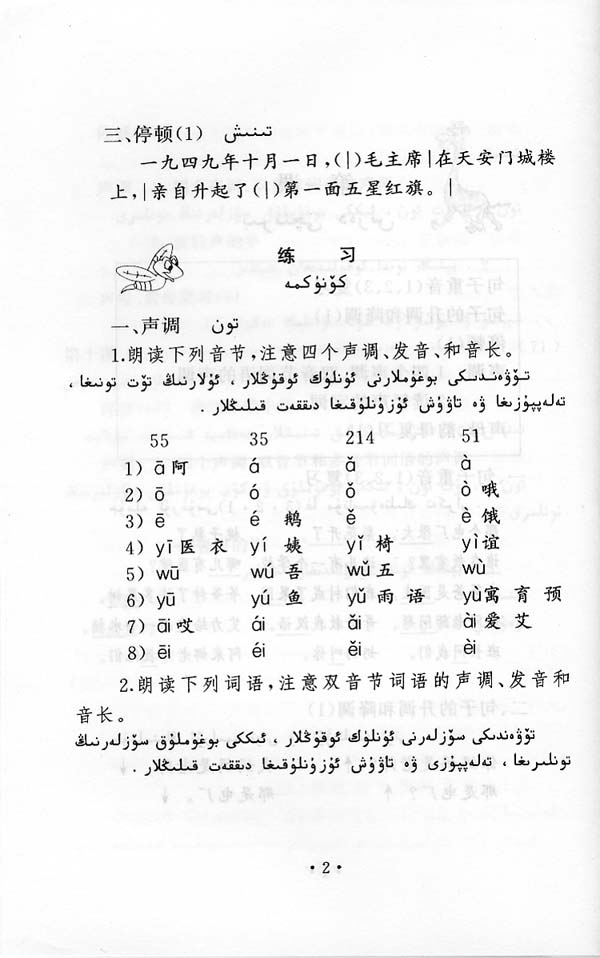 三、停顿(1) تىنىش
一九四九年十月一日,(|)毛主席|在天安门城楼
上,|亲自升起了(|)第一面五星红旗。|
练 习
كۆنۈكمە
一、声调 تون
1.朗读下列音节,注意四个声调、发音、和音长。
تۆۋەندىكى بوغۇملارنى ئۈنلۈك ئوقۇڭلار، ئۇلارنىڭ تۆت تونىغا،
تەلەپپۇزىغا ۋە تاۋۇش ئۇزۇنلۇقىغا دىققەت قىلىڭلار.
55 35 214 51
1) ā阿 á ǎ à
2) ō ó ǒ ò哦
3) ē é 鹅 ě è饿
4) yī医 衣 yí 姨 yǐ 椅 yì谊
5) wū wú 吾 wǔ 五 wù
6) yū yú 鱼 yǔ 雨 语 yù寓 育 预
7) āi哎 ái ǎi ài爱 艾
8) ēi éi ěi èi
2.朗读下列词语,注意双音节词语的声调、发音和
音长。
تۆۋەندىكى سۆزلەرنى ئۈنلۈك ئوقۇڭلار، ئىككى بوغۇملۇق سۆزلەرنىڭ
تونلىرىغا، تەلەپپۇزى ۋە تاۋۇش ئۇزۇنلۇقىغا دىققەت قىلىڭلار.
·2·